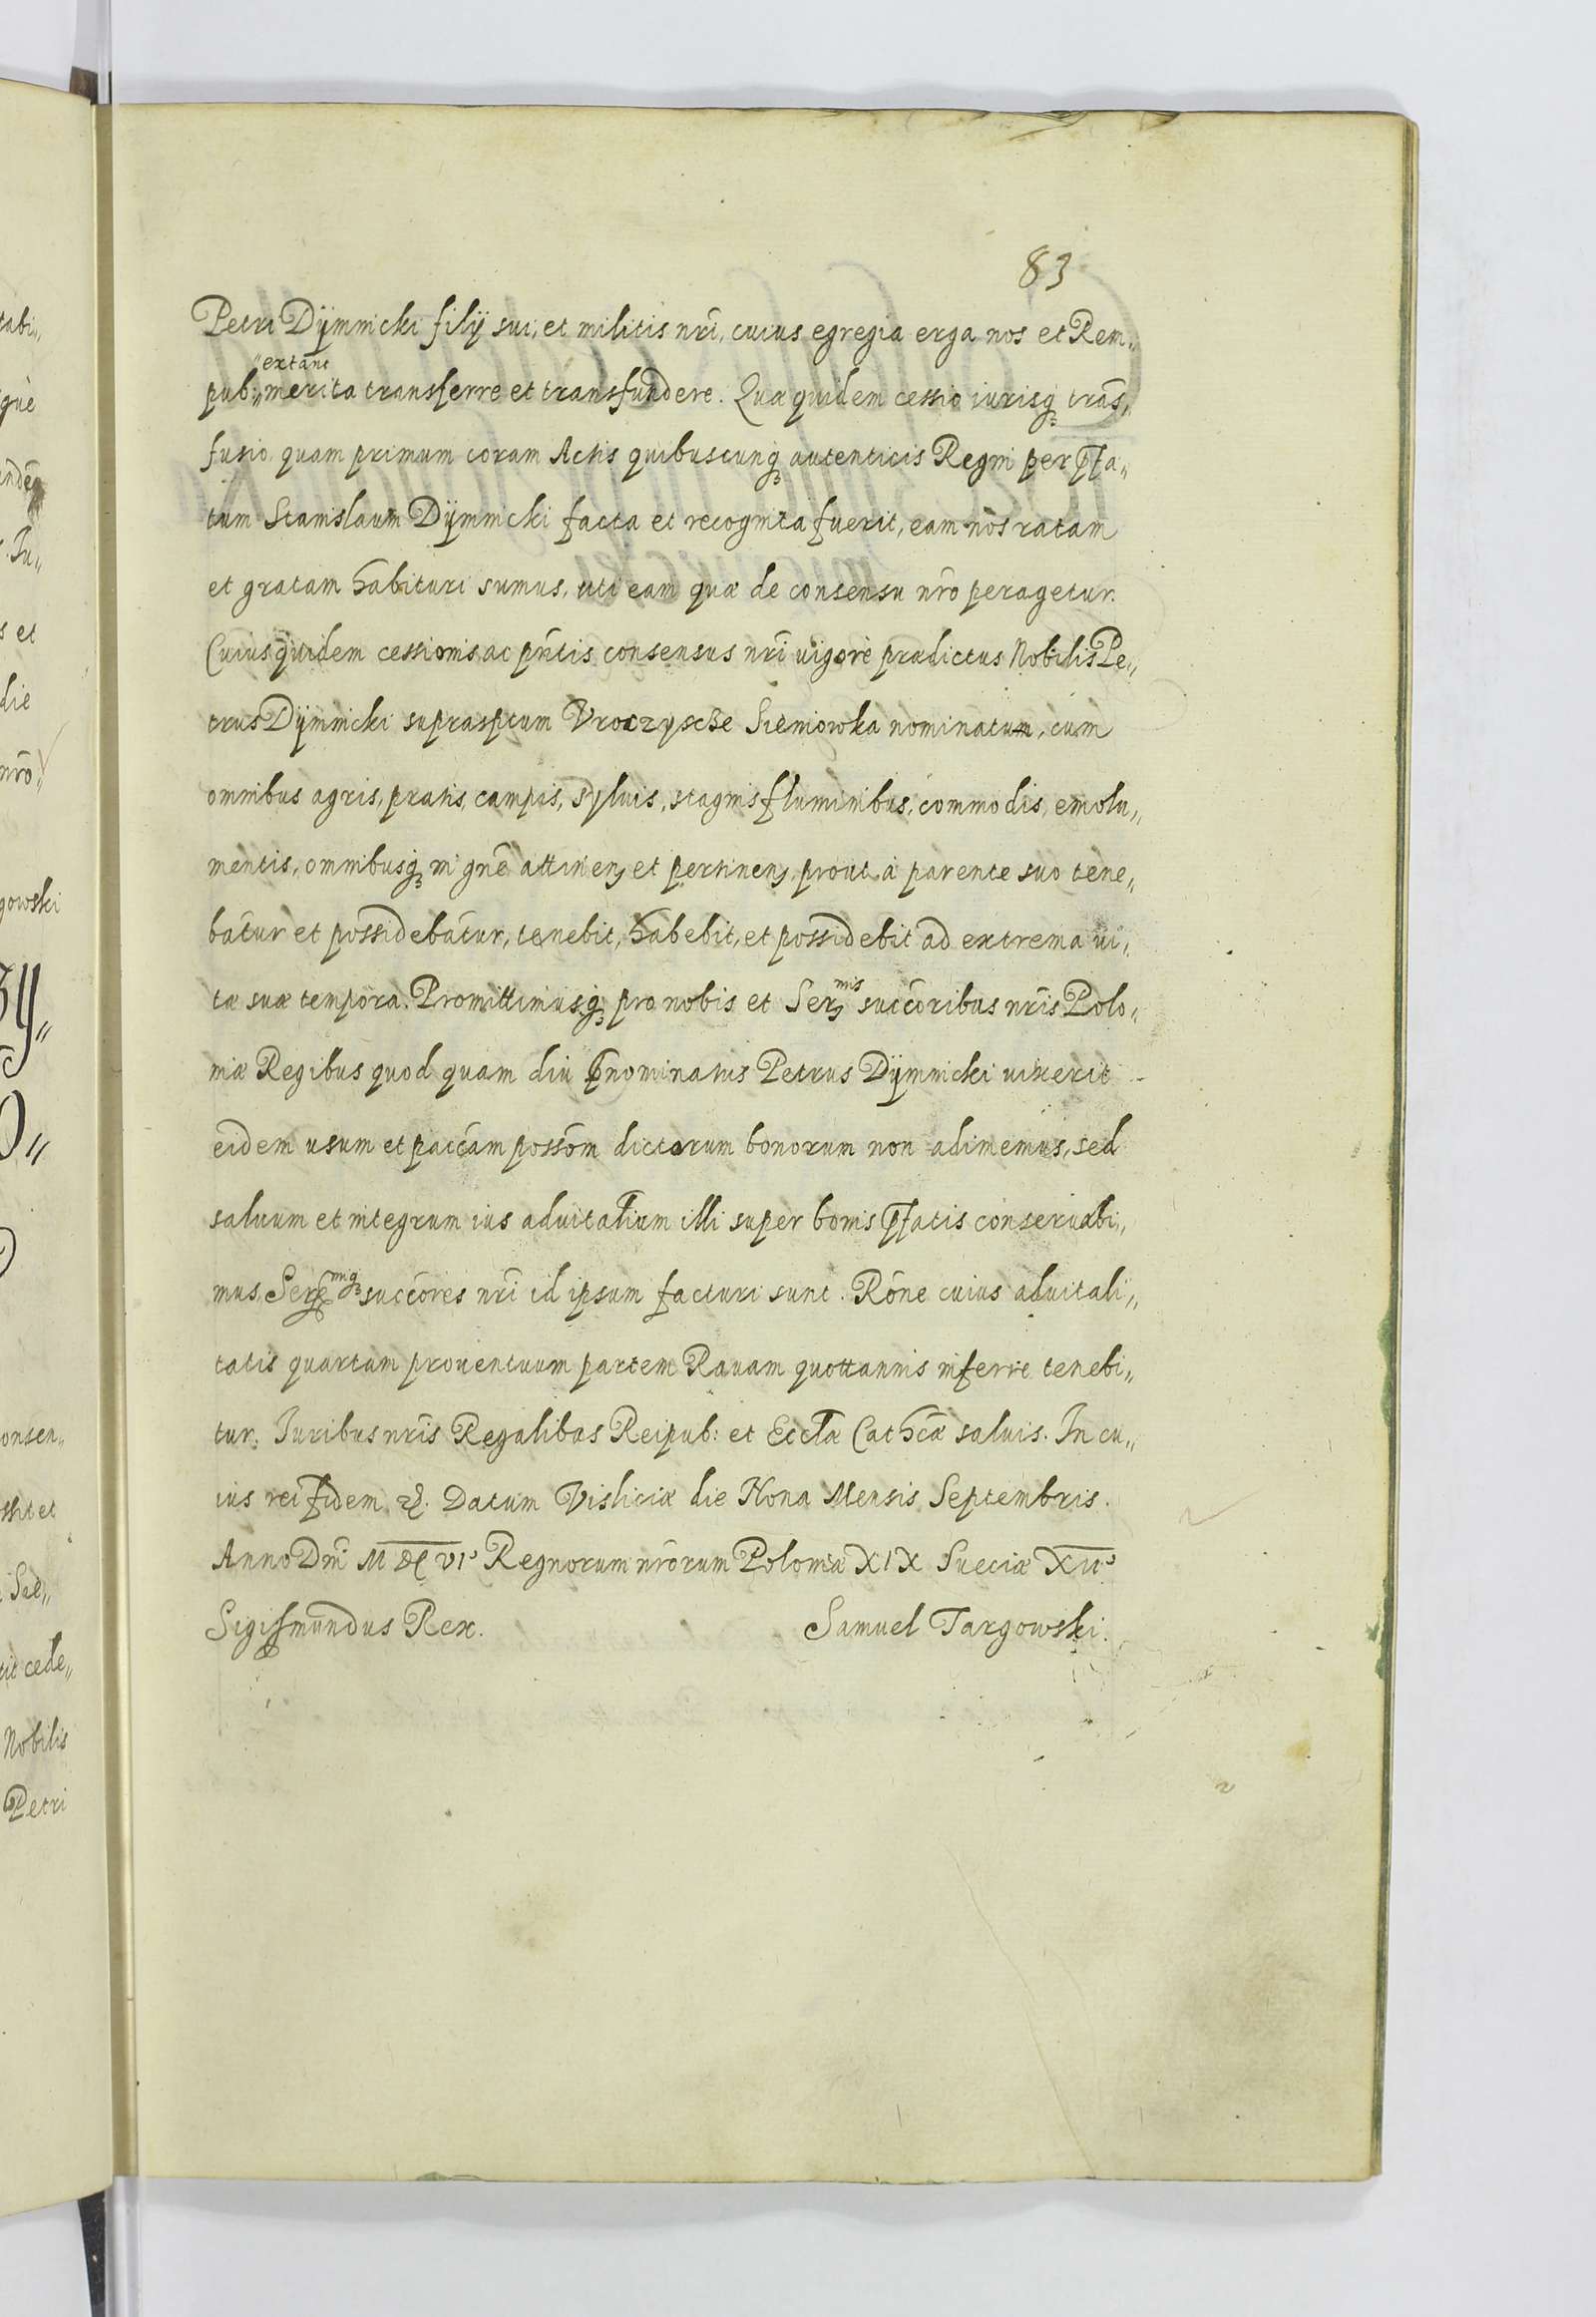 83
Petri Dÿmnicki filÿ sui, et militis nrĩ, cuius egregia erga nos et Rem„
extant
pub:„ merita transferre et transfundere. Quæ quidem cessio iurisq̨ trãs„
fusio quam primum coram Actis quibuscunq̨ autenticis Regni per p̃fa„
tum Stanislaum Dÿmnicki facta et recognita fuerit, eam nos ratam
et gratam habituri sumus, uti eam quæ de consensu nrõ peragetur.
Cuius quidem cessionis ac pñtis consensus nrĩ uigore prædictus Nobilis Pe„
trus Dÿmnicki suprasptum Vroczysche Sieniowka nominatum, cum
omnibus agris, pratis, campis, syluis, stagnis fluminibus, commodis, emolu„
mentis, omnibusq̨ in gñe attinen; et pertinen; prout à parente suo tene„
batur et possidebatur, tenebit, habebit, et possidebit ad extrema ui„
tæ suæ tempora. Promittimusq̨ pro nobis et Ser; mis succõribus nrĩs Polo„
niæ Regibus quod quam diu p̃nominatus Petrus Dÿmnicki uixerit
eidem usum et paccãm possõm dictorum bonorum non adimemus, sed
saluum et integrum ius aduitalium illi super bonis p̃fatis conseruabi„
mus, Ser miq̨ succõres nrĩ id ipsum facturi sunt. Rõne cuius aduitali„
tatis quartam prouentuum partem Rauam quottannis inferre tenebi„
tur. Iuribus nrĩs Regalibus Reipub: et Ecclæ Cathcæ saluis. In cu„
ius rei fidem &. Datum Visliciæ die Nona Mensis Septembris.
Anno Dnĩ M DC VIº Regnorum nrõrum Poloniæ XIX Sueciæ XIIº
Sigismundus Rex. Samuel Targowski.